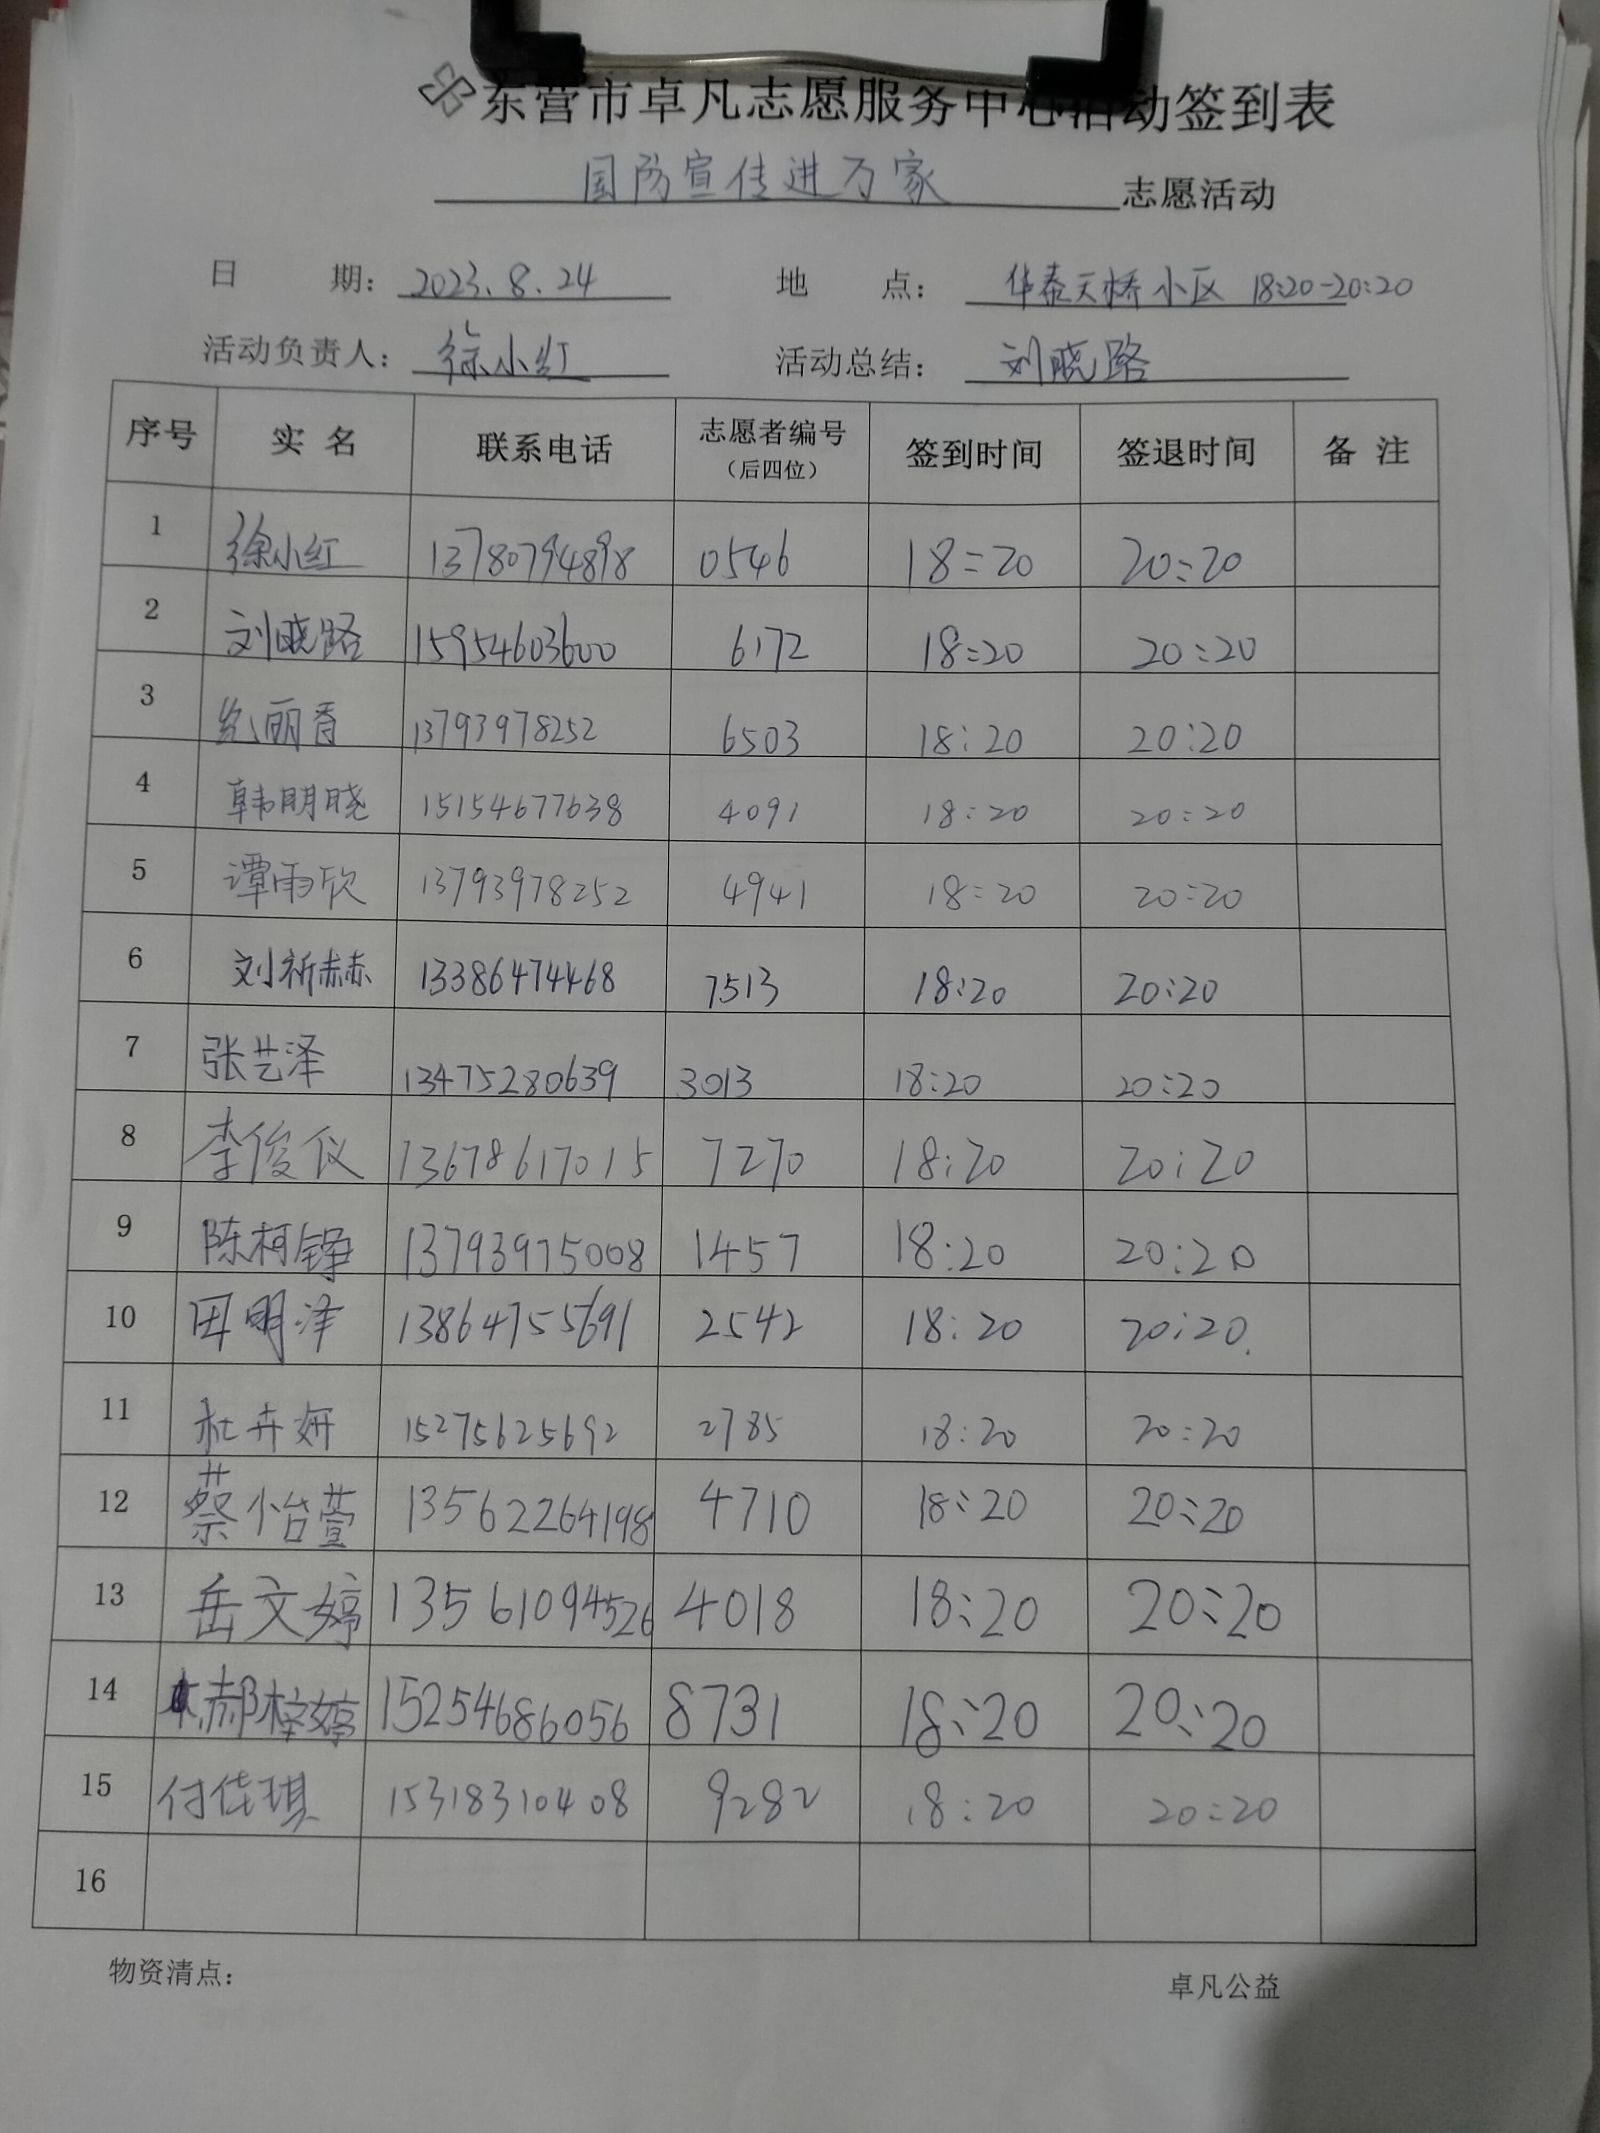 东营市卓凡志愿服务中心活动签到表
国防宣传进万家 志愿活动
日 期: 2023.8.24 地 点: 华泰天桥小区 18:20-20:20
活动负责人: 徐小红 活动总结: 刘晓路
序号 实名 联系电话 志愿者编号(后四位) 签到时间 签退时间 备注
1 徐小红 13780794898 0546 18:20 20:20
2 刘晓路 15954603600 6172 18:20 20:20
3 纪丽香 13793978252 6503 18:20 20:20
4 韩明晓 15154677638 4091 18:20 20:20
5 谭雨欣 13793978252 4941 18:20 20:20
6 刘祈赫 13386474468 7513 18:20 20:20
7 张艺泽 13475280639 3013 18:20 20:20
8 李俊仪 13678617015 7270 18:20 20:20
9 陈柯铮 13793975008 1457 18:20 20:20
10 田明泽 13864755691 2542 18:20 20:20.
11 杜卉妍 15275625692 2785 18:20 20:20
12 蔡怡萱 13562264198 4710 18:20 20:20
13 岳文婷 13561094526 4018 18:20 20:20
14 郝梓婷 15254686056 8731 18:20 20:20
15 付佳琪 15318310408 9282 18:20 20:20
16
物资清点: 卓凡公益